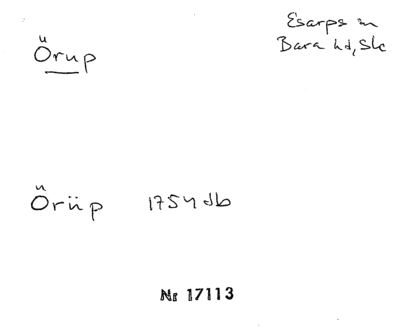 Esarps sn
Bara hd, Sk
Örup
Örüp 1754 db
Nr 17113